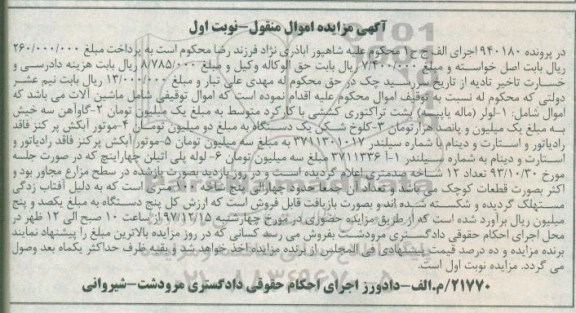 آگهی مزایده اموال منقول-نوبت اول
در پرونده ۹۴۰۱۸۰ اجرای محکوم علیه شاهپور اباذری نژاد فرزند رضا محکوم است به پرداخت مبلغ ۲۶۰/۰۰۰/۰۰۰
ریال بابت اصل خواسته و مبلغ ۷/۴۰۰/۰۰۰ ریال بابت حق الوکاله وکیل و مبلغ ۸/۷۸۵/۰۰۰ ریال بابت هزینه دادرسی و
خسارت تاخیر تادیه از تاریخ سررسید چک در حق محکوم له مهدی علی تبار و مبلغ ۱۳/۰۰۰/۰۰۰ ریال بابت نیم عشر
دولتی که محکوم له نسبت به توقیف اموال محکوم علیه اقدام نموده است که اموال توقیفی شامل ماشین آلات می باشد که
اموال شامل: ۱-لولر (ماله پابیل) پشت تراکتوری کششی با کارکرد متوسط به مبلغ یک میلیون تومان ۲-گاوآهن سه خیش
به مبلغ یک میلیون و پانصد هزار تومان ۳-کلوخ شکن یک دستگاه به مبلغ دو میلیون تومان ۴-موتور آبکش پر کنز فاقد
رادیاتور و استارت و دینام با شماره سیلندر ۳۷۱۱۳۰۱۰۱۷ به مبلغ سه میلیون تومان ۵-موتور آبکش پرکنز فاقد رادیاتور و
استارت و دینام به شماره سیلندر ۱-آ ۳۷۱۱۳۳۶ مبلغ سه میلیون تومان ۶- لوله پلی اتیلن چهاراینچ که در صورت جلسه
مورخ ۹۳/۱۰/۳۰ تعداد ۱۲ شاخه صدمتری اعلام گردیده است و در روز بازدید بصورت باز شده در سطح مزارع مجاور بود و
اکثر بصورت قطعات کوچک می باشد و تعداد آن جمعا حدود چهارالی پنج شاخه صدمتری است که به دلیل آفتاب زدگی
مستهلک گردیده و شکسته شده اند و بصورت بازیافت قابل فروش است که ارزش کل پنج دستگاه به مبلغ یکصد و پنج
میلیون ریال برآورد شده است که از طریق مزایده حضوری در مورخ چهارشنبه ۹۷/۱۲/۱۵ از ساعت ۱۰ صبح الی ۱۲ ظهر در
محل اجرای احکام حقوقی دادگستری مرودشت بفروش می رسد کسانی که در روز مزایده بالاترین مبلغ را پیشنهاد نمایند
برنده مزایده و ده درصد قیمت پیشنهادی فی المجلس از برنده مزایده اخذ خواهد شد و بقیه ظرف حداکثر یکماه بعد وصول
می گردد. مزایده نوبت اول است.
۲۱۷۷۰/م.الف-دادورز اجرای احکام حقوقی دادگستری مرودشت-شیروانی